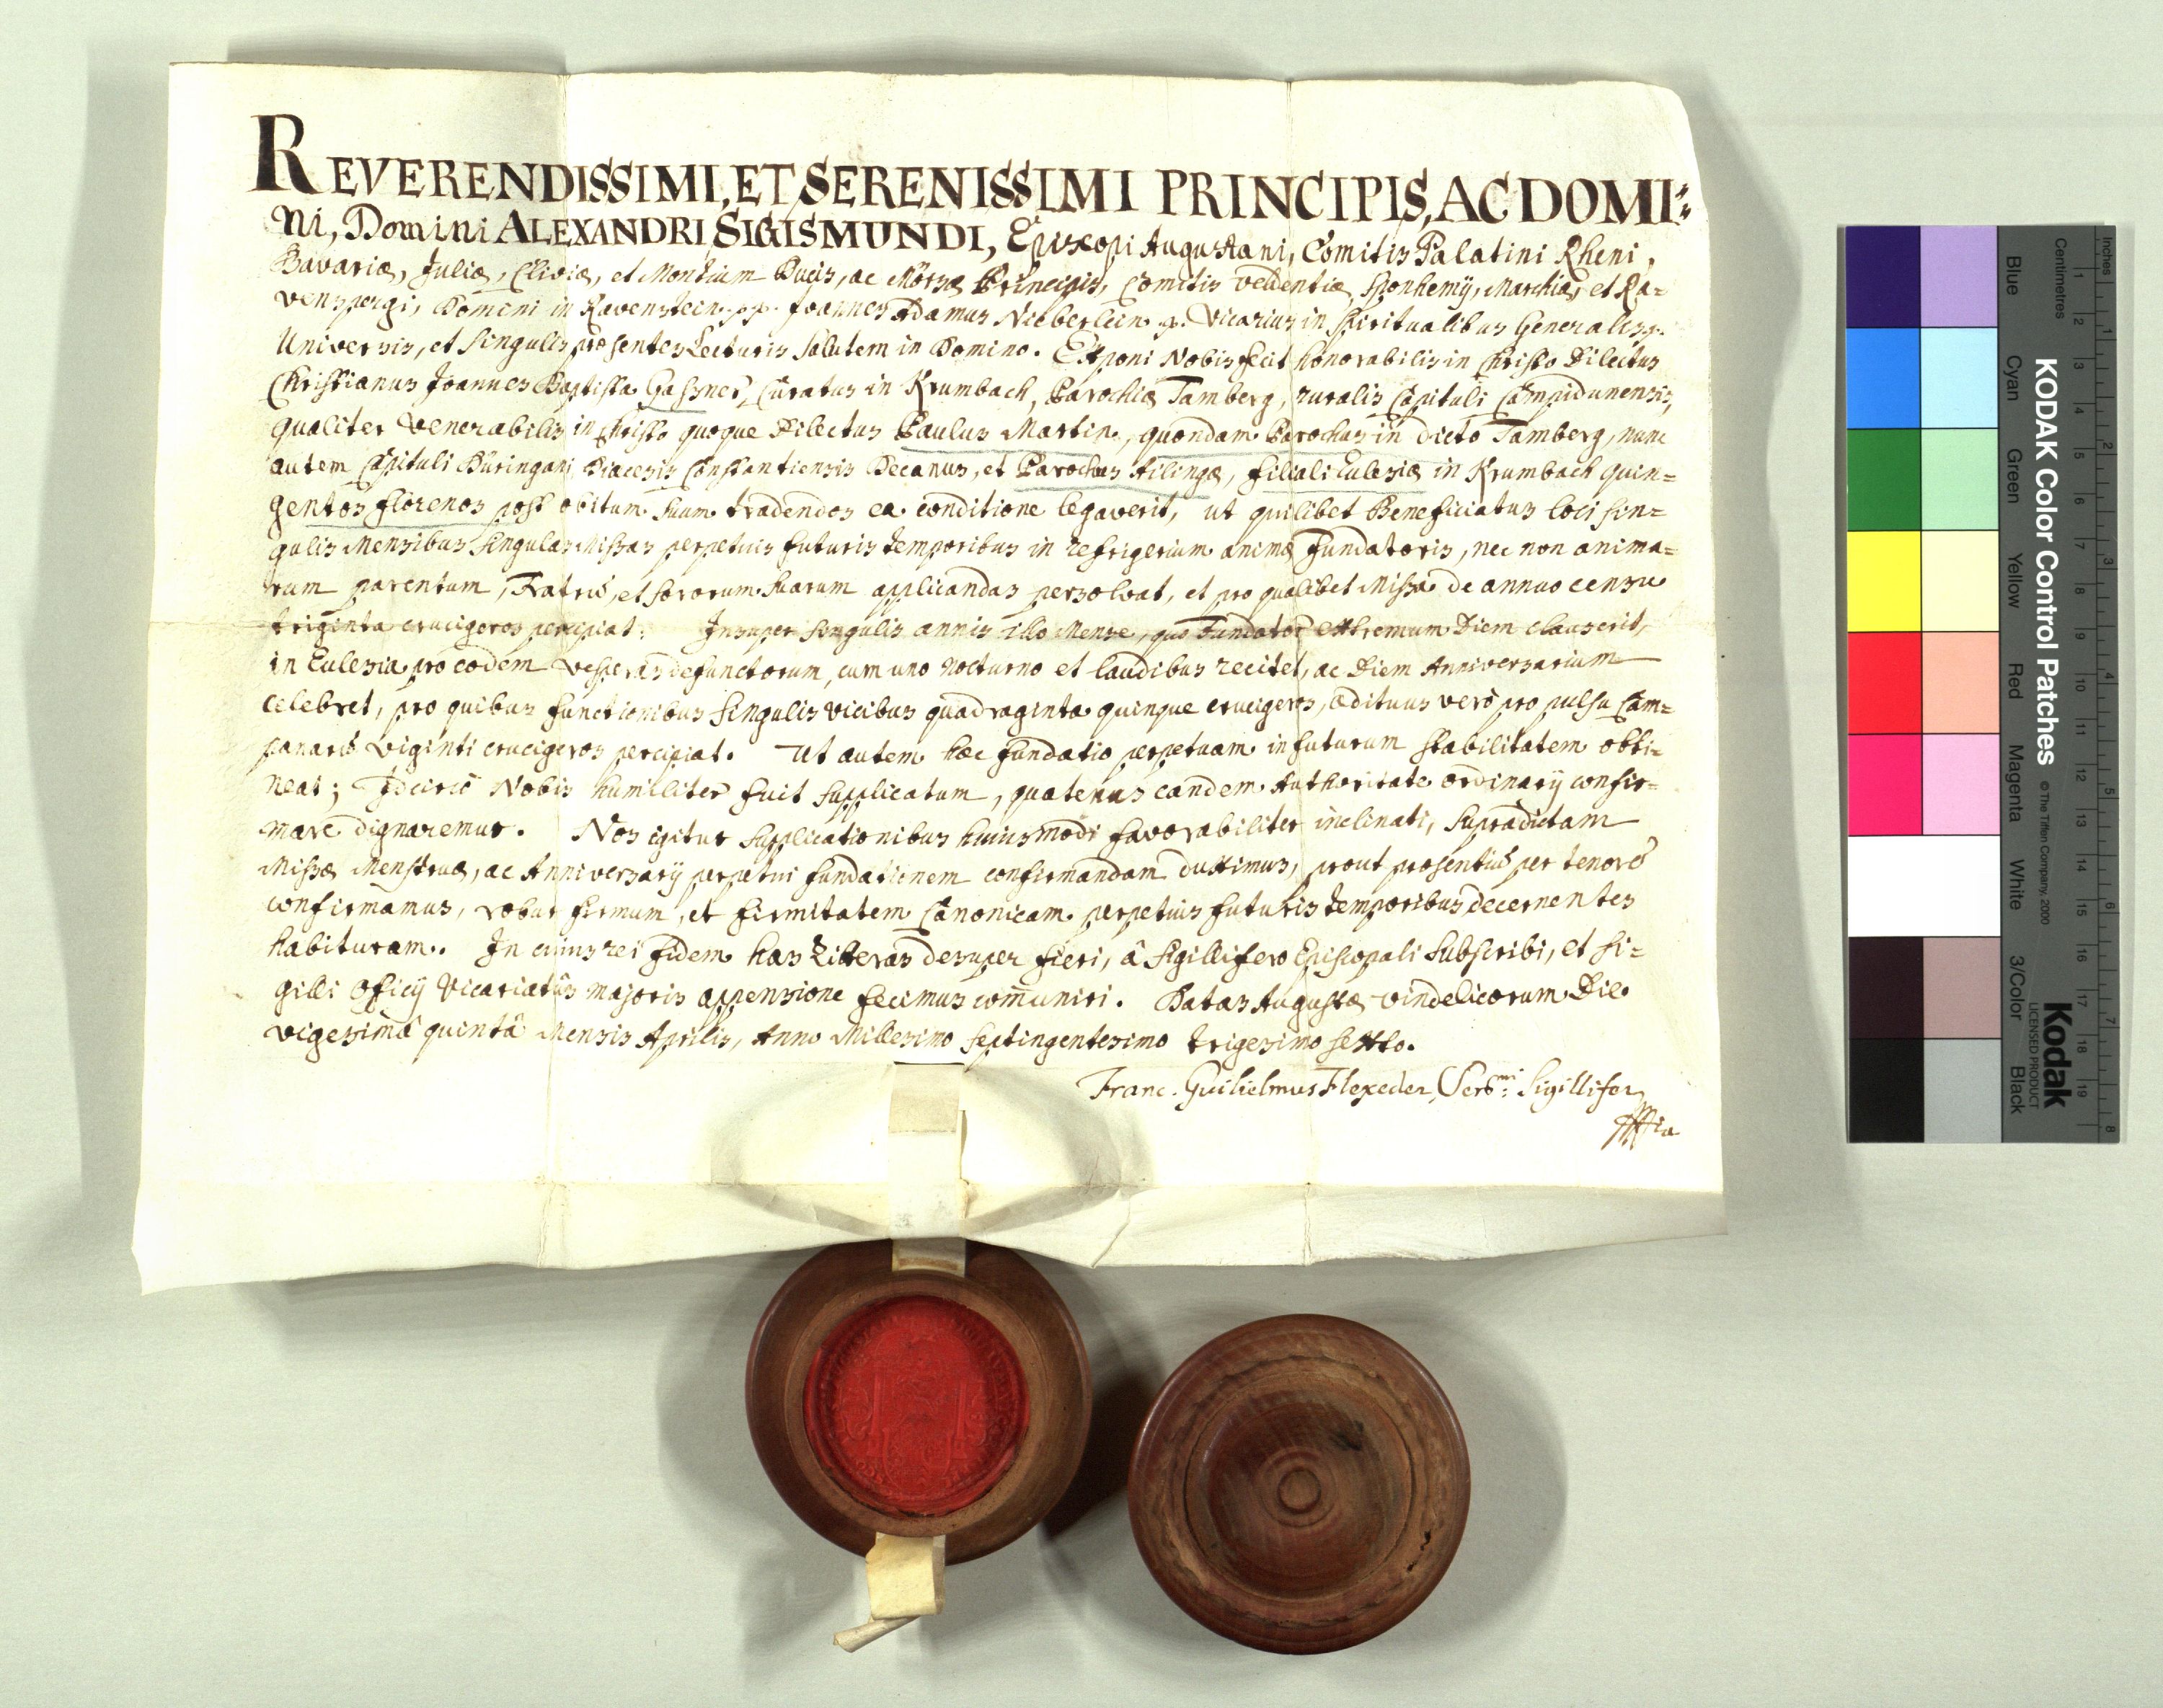 REVERENDISSIMI, ET SERENISSIMI PRINCIPIS, AC DOMI:
ni, Domini ALEXANDRI SIGISMUNDI, Episcopi Augustani, Comitis Palatini Rheni,
Bavariæ, Juliæ, Cliviæ, et Montium Ducis, ac Mörsæ Principis, Comitis Veldentiæ, Sponhemij, Marchiæ, et Ra=
venspergi, Domini in Ravenstein. pp. Joannes Adamus Nieberlein. p. Vicarius in Spiritualibus Generalis p.
Universis, et Singulis præsentes Lecturis Salutem in Domino. Exponi Nobis fecit honorabilis in Christo Dilectus
Christianus Joannes Baptista Gassner, Curatus in Krumbach, Parochiæ Tamberg, ruralis Capituli Campidunensis,
qualiter Venerabilis in Christo quoque Dilectus Paulus Martin, quondam Parochus in dicto Tamberg, nunc
autem Capituli Düringani Diæcesis Constantiensis Decanus, et Parochus Ailingæ, filiali Eclesiæ in Krumbach quin=
gentos florenos post obitum suum tradendos ea conditione legaverit, ut quilibet Beneficiatus loci sin=
gulis Mensibus Singulas Missas perpetuis futuris temporibus in refrigerium animæ Fundatoris, nec non anima=
rum parentum, Fratrū, et sororum suarum applicandas persolvat, et pro qualibet Missa de annuo censu
triginta crucigeros percipiat: Insuper singulis annis illo Mense, quo Fundator extremum Diem clauserit,
in Eclesia pro eodem vesperas defunctorum, cum uno nocturno et laudibus recitet, ac Diem Anniversarium
celebret, pro quibus functionibus singulis vicibus quadraginta quinque crucigeros, ædituus verò pro pulsu Cam=
panarū viginti crucigeros percipiat. Ut autem hæc fundatio perpetuam in futurum stabilitatem obti=
neat; Idcircò Nobis humiliter fuit supplicatum, quatenus eandem Authoritate ordinarij confir=
mare dignaremur. Nos igitur supplicationibus huiusmodi favorabiliter inclinati, supradictam
Missæ Menstruæ, ac Anniversarij perpetui fundationem confirmandam duximus, prout præsentiū per tenorē
confirmamus, robur firmum, et firmitatem Canonicam perpetuis futuris temporibus decernentes
habituram. In cuius rei fidem has Litteras desuper fieri, â Sigillifero Episcopali subscribi, et si=
gilli officij Vicariatûs majoris appensione fecimus com̄uniri. Datas Augustæ vindelicorum Die
vigesimâ quintâ Mensis Aprilis, Anno Millesimo septingentesimo trigesimo sexto.
Franc. Guilielmus Flexeder, Sermi: Sigillifer
Inches
Centimetres
1 2 3 4 5 6 7 8
1 2 3 4 5 6 7 8 9 10 11 12 13 14 15 16 17 18 19
KODAK Color Control Patches
© The Tiffen Company, 2000
Kodak
LICENSED PRODUCT
Blue
Cyan
Green
Yellow
Red
Magenta
White
3/Color
Black